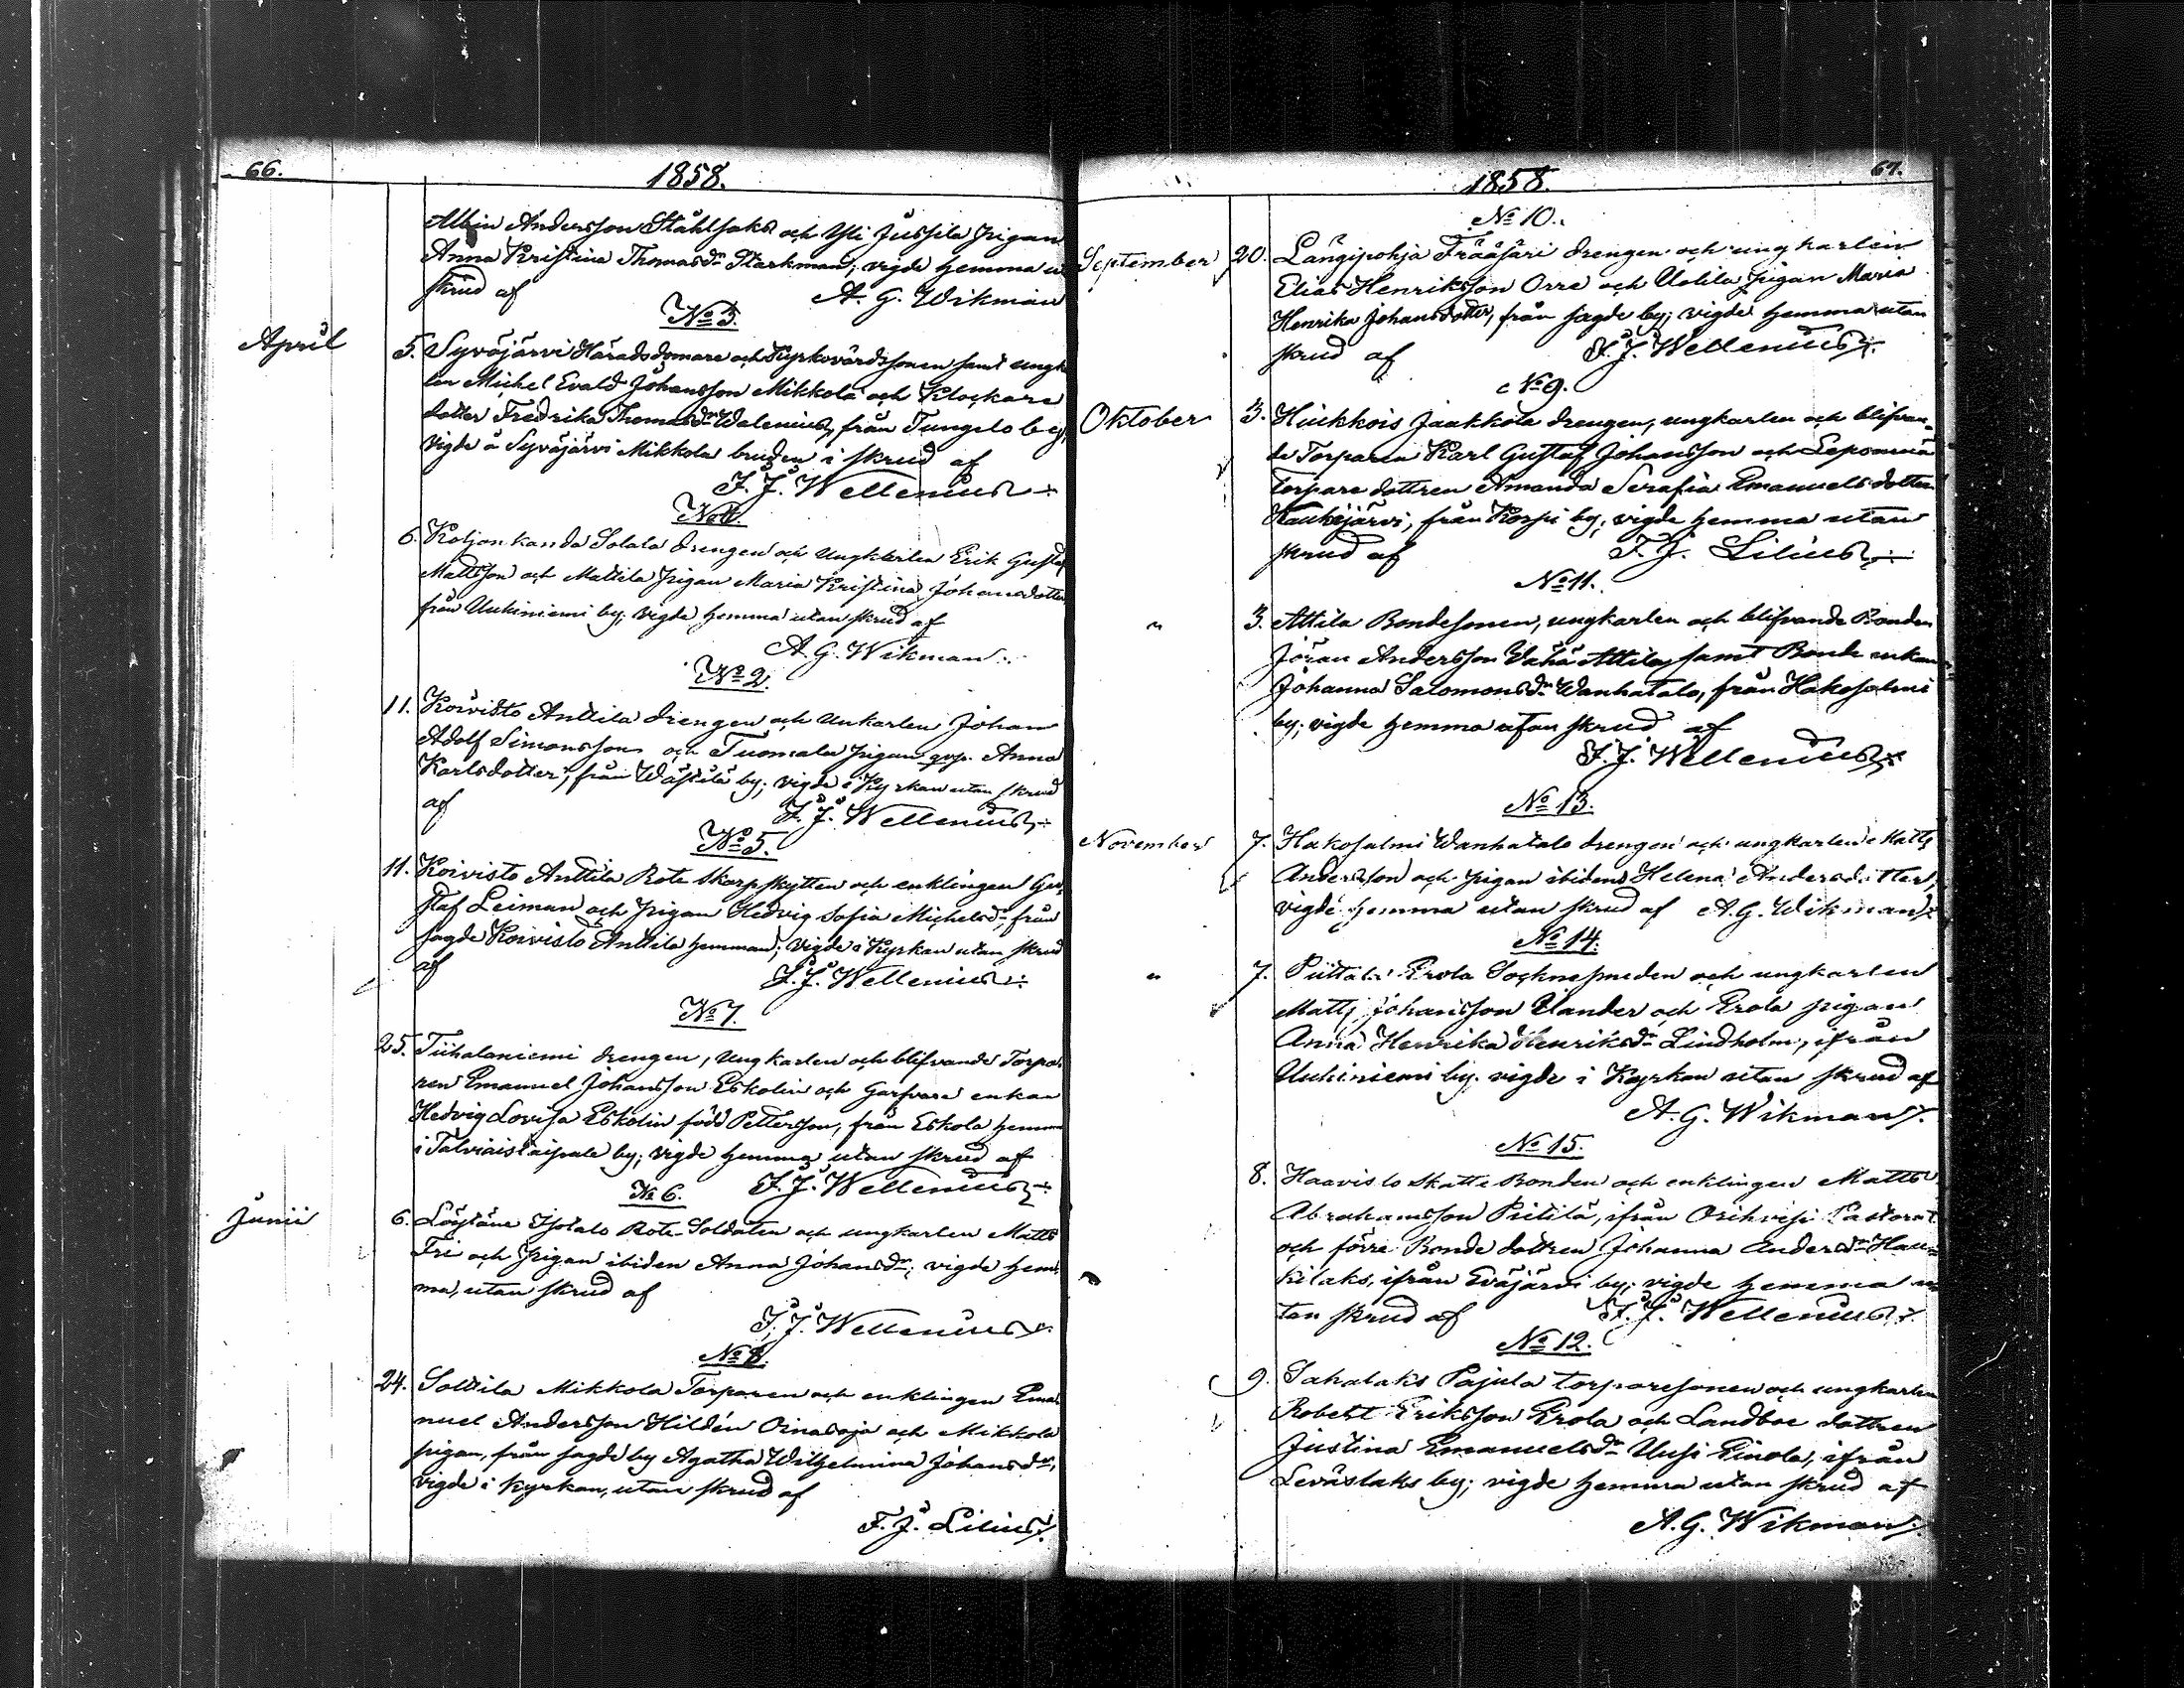 66.
1858.
Albin Andersson Ståhlsaks och Yli Jussila pigan
Anna Kristina Thomasdr Starkman; vigde hemma u
skrud af A. G. Wikman
No 3.
April 5. Syväjärvi Häradsdomare och Kyrkovärdssonen samt ungk
len Michel Evald Johansson Mikkola och Klockare
dotter Fredrika Thomasdr Walenius, från Tungelo by;
vigde å Syväjärvi Mikkola bruden i skrud af
F. J. Wellenius
No 4.
6. Koljonkanda Solala drengen och Ungkarlen Erik Gustaf
Mattsson och Mattila pigan Maria Kristina Johansdotter
från Uuhiniemi by; vigde hemma utan skrud af
A. G. Wikman
No 2.
11. Koivisto Anttila drengen och Unkarlen Johan
Adolf Simonsson och Tuomala pigan qvp. Anna
Karlsdotter, från Wästilä by; vigde i Kyrkan utan skrud
af F. J. Wellenius
No 5.
11. Koivisto Anttila Rote Skarpskytten och enklingen Gu-
staf Leiman och pigan Hedvig Sofia Michelsdr, från
sagde Koivisto Anttila hemman; vigde i Kyrkan utan skrud
af F. J. Wellenius
No 7.
25. Tiihalaniemi drengen, Ungkarlen och blifvande Torpa-
ren Emanuel Johansson Eskolin och Garfvare enkan
Hedvig Lovisa Eskolin född Pettersson, från Eskola hemm
i Talviaistaipale by; vigde hemma utan skrud af
F. J. Wellenius
No 6.
Junii 6. Löytäne Isotalo Rote-Soldaten och ungkarlen Matts
Fri och pigan ibiden Anna Johansdr; vigde hem-
ma, utan skrud af
F. J. Wellenius
No 8.
24. Solttila Mikkola Torparen och enklingen Ema-
nuel Andersson Hildén Oinasoja och Mikkola
pigan, från sagde by Agatha Wilhelmina Johansdr,
vigde i kyrkan, utan skrud af
F. J. Lilius
67.
1858.
No 10.
September 20. Längipohja Frääsäri drengen och ungkarlen
Elias Henriksson Orre och Uotila pigan Maria
Henrika Johansdotter, från sagde by; vigde hemma utan
skrud af F. J. Wellenius
No 9.
Oktober 3. Hiukkois Jaakkola drengen, ungkarlen och blifvan-
de Torparen Karl Gustaf Johansson och Leponiemi
Torpare dottren Amanda Serafia Emanuelsdotter
Haukijärvi, från Korpi by; vigde hemma utan
skrud af F. J. Lilius
No 11.
" 3. Attila Bondesonen, ungkarlen och blifvande Bonden
Jöran Andersson Vähä Attila, samt Bonde enkan
Johanna Salomonsdr Wanhatalo, från Hakosalmi
by; vigde hemma utan skrud af
F. J. Wellenius
No 13.
November 7. Hakosalmi Wanhatalo drengen och ungkarlen Matts
Andersson och pigan ibidem Helena Andersdotter,
vigde hemma utan skrud af A. G. Wikman
No 14.
" 7. Piittala Erola Socknesmeden och ungkarlen
Matts Johansson Elander och Erola pigan
Anna Henrika Henriksdr Lindholm, ifrån
Uuhiniemi by. vigde i Kyrkan utan skrud af
A. G. Wikman
No 15.
8. Haavisto Skatte Bonden och enklingen Matts
Abrahamsson Pitilä, ifrån Orihvisi Pastorat
och förre Bonde dottren Johanna Andersdr Hau-
kilaks, ifrån Eväjärvi by; vigde hemma u-
tan skrud af F. J. Wellenius
No 12.
9. Sahalaks Pajula torparesonen och ungkarlen
Robert Eriksson Erola och Landboe dottren
Justina Emanuelsdr Uusi Einola, ifrån
Leväslaks by; vigde hemma utan skrud af
A. G. Wikman